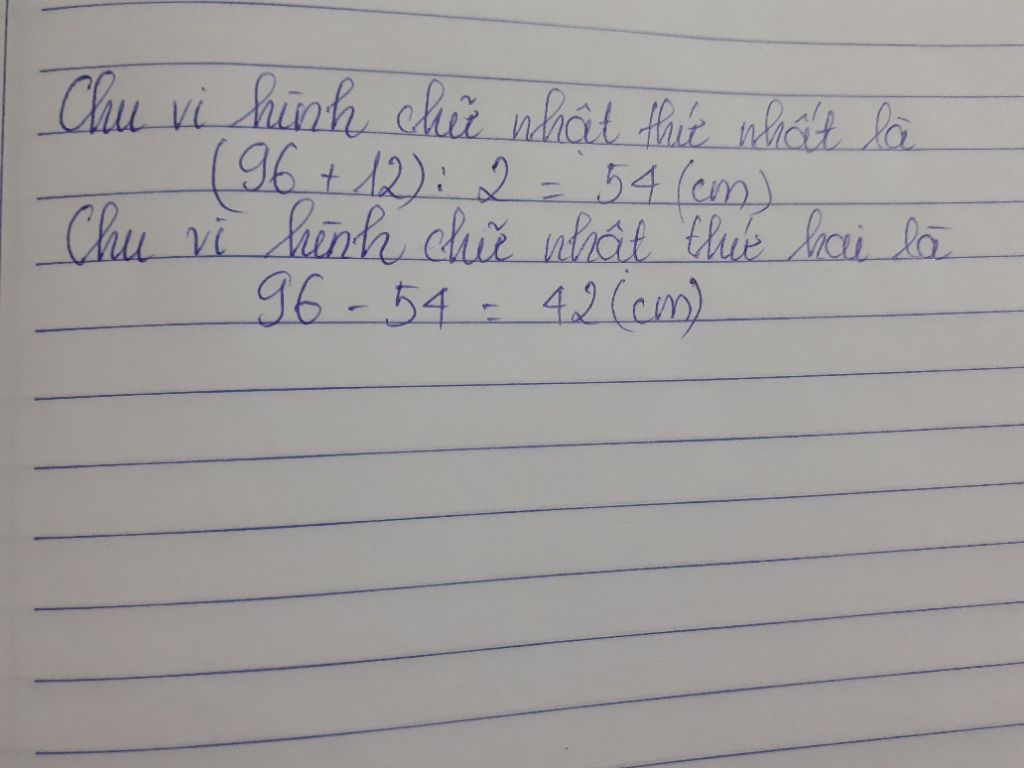 Chu vi hình chữ nhật thứ nhất là
(96 + 12) : 2 = 54 (cm)
Chu vi hình chữ nhật thứ hai là
96 - 54 = 42 (cm)